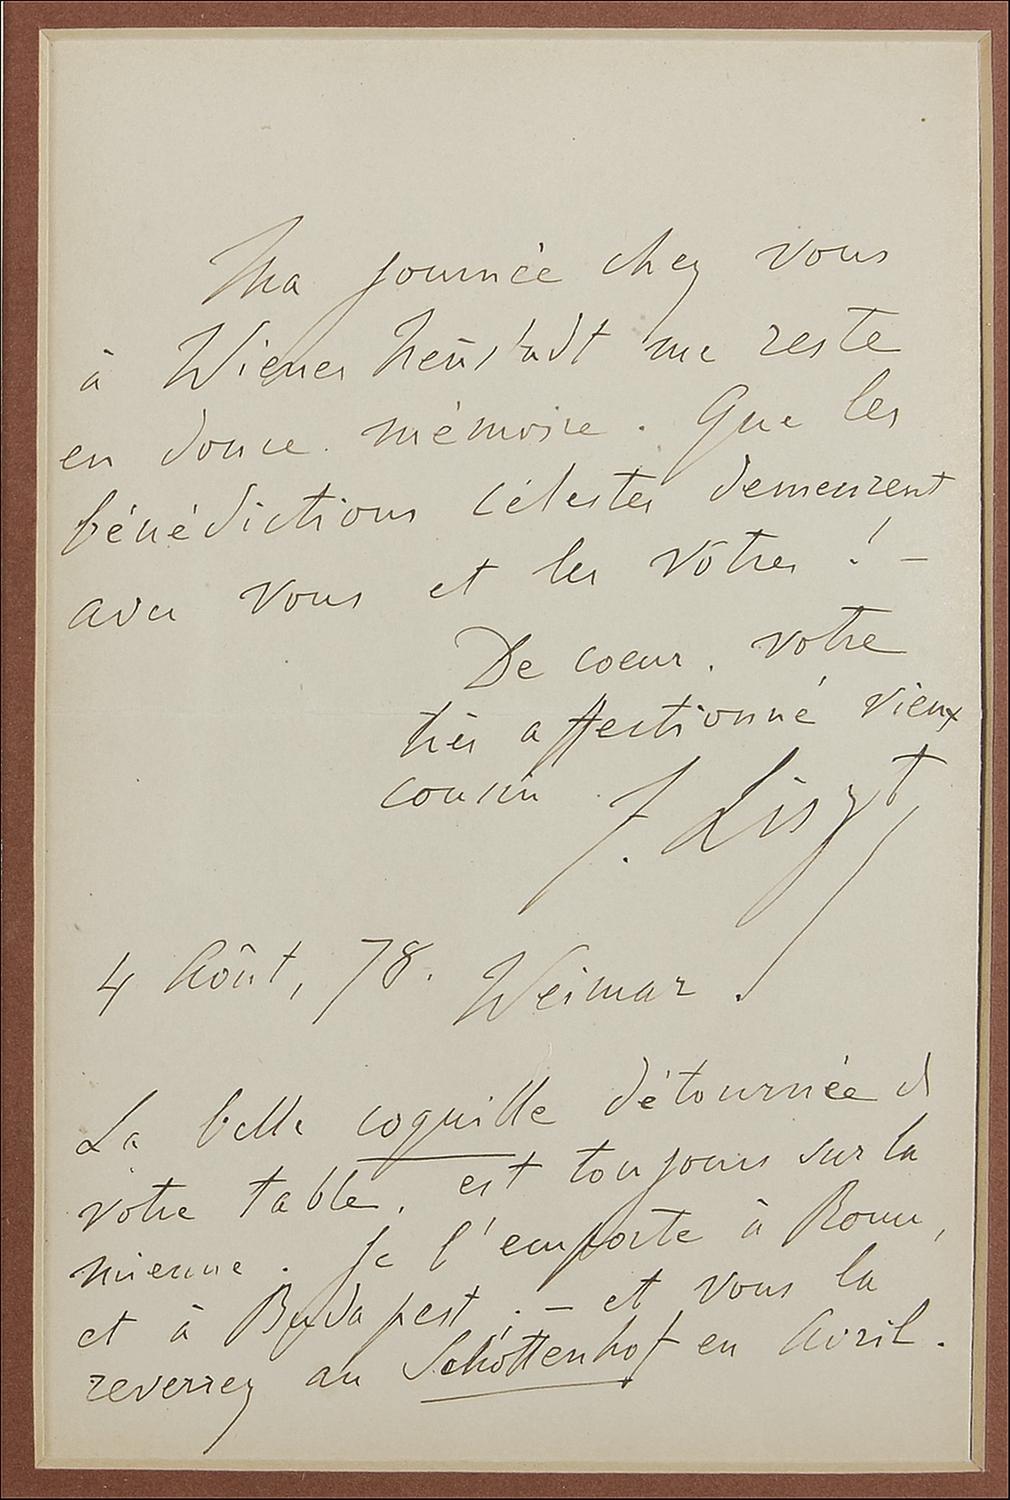 Ma journée chez vous
à Wiener Neüstadt me reste
en douce mémoire. Que les
bénédictions célestes demeurent
avec vous et les vôtres ! –
De coeur, votre
très affectionné vieux
cousin F. Liszt
4 Août, 78. Weimar.
La belle coquille détournée de
votre table, est toujours sur la
mienne. Je l'emporte à Rome,
et à Budapest ; – et vous la
reverrez au Schottenhof en Avril.